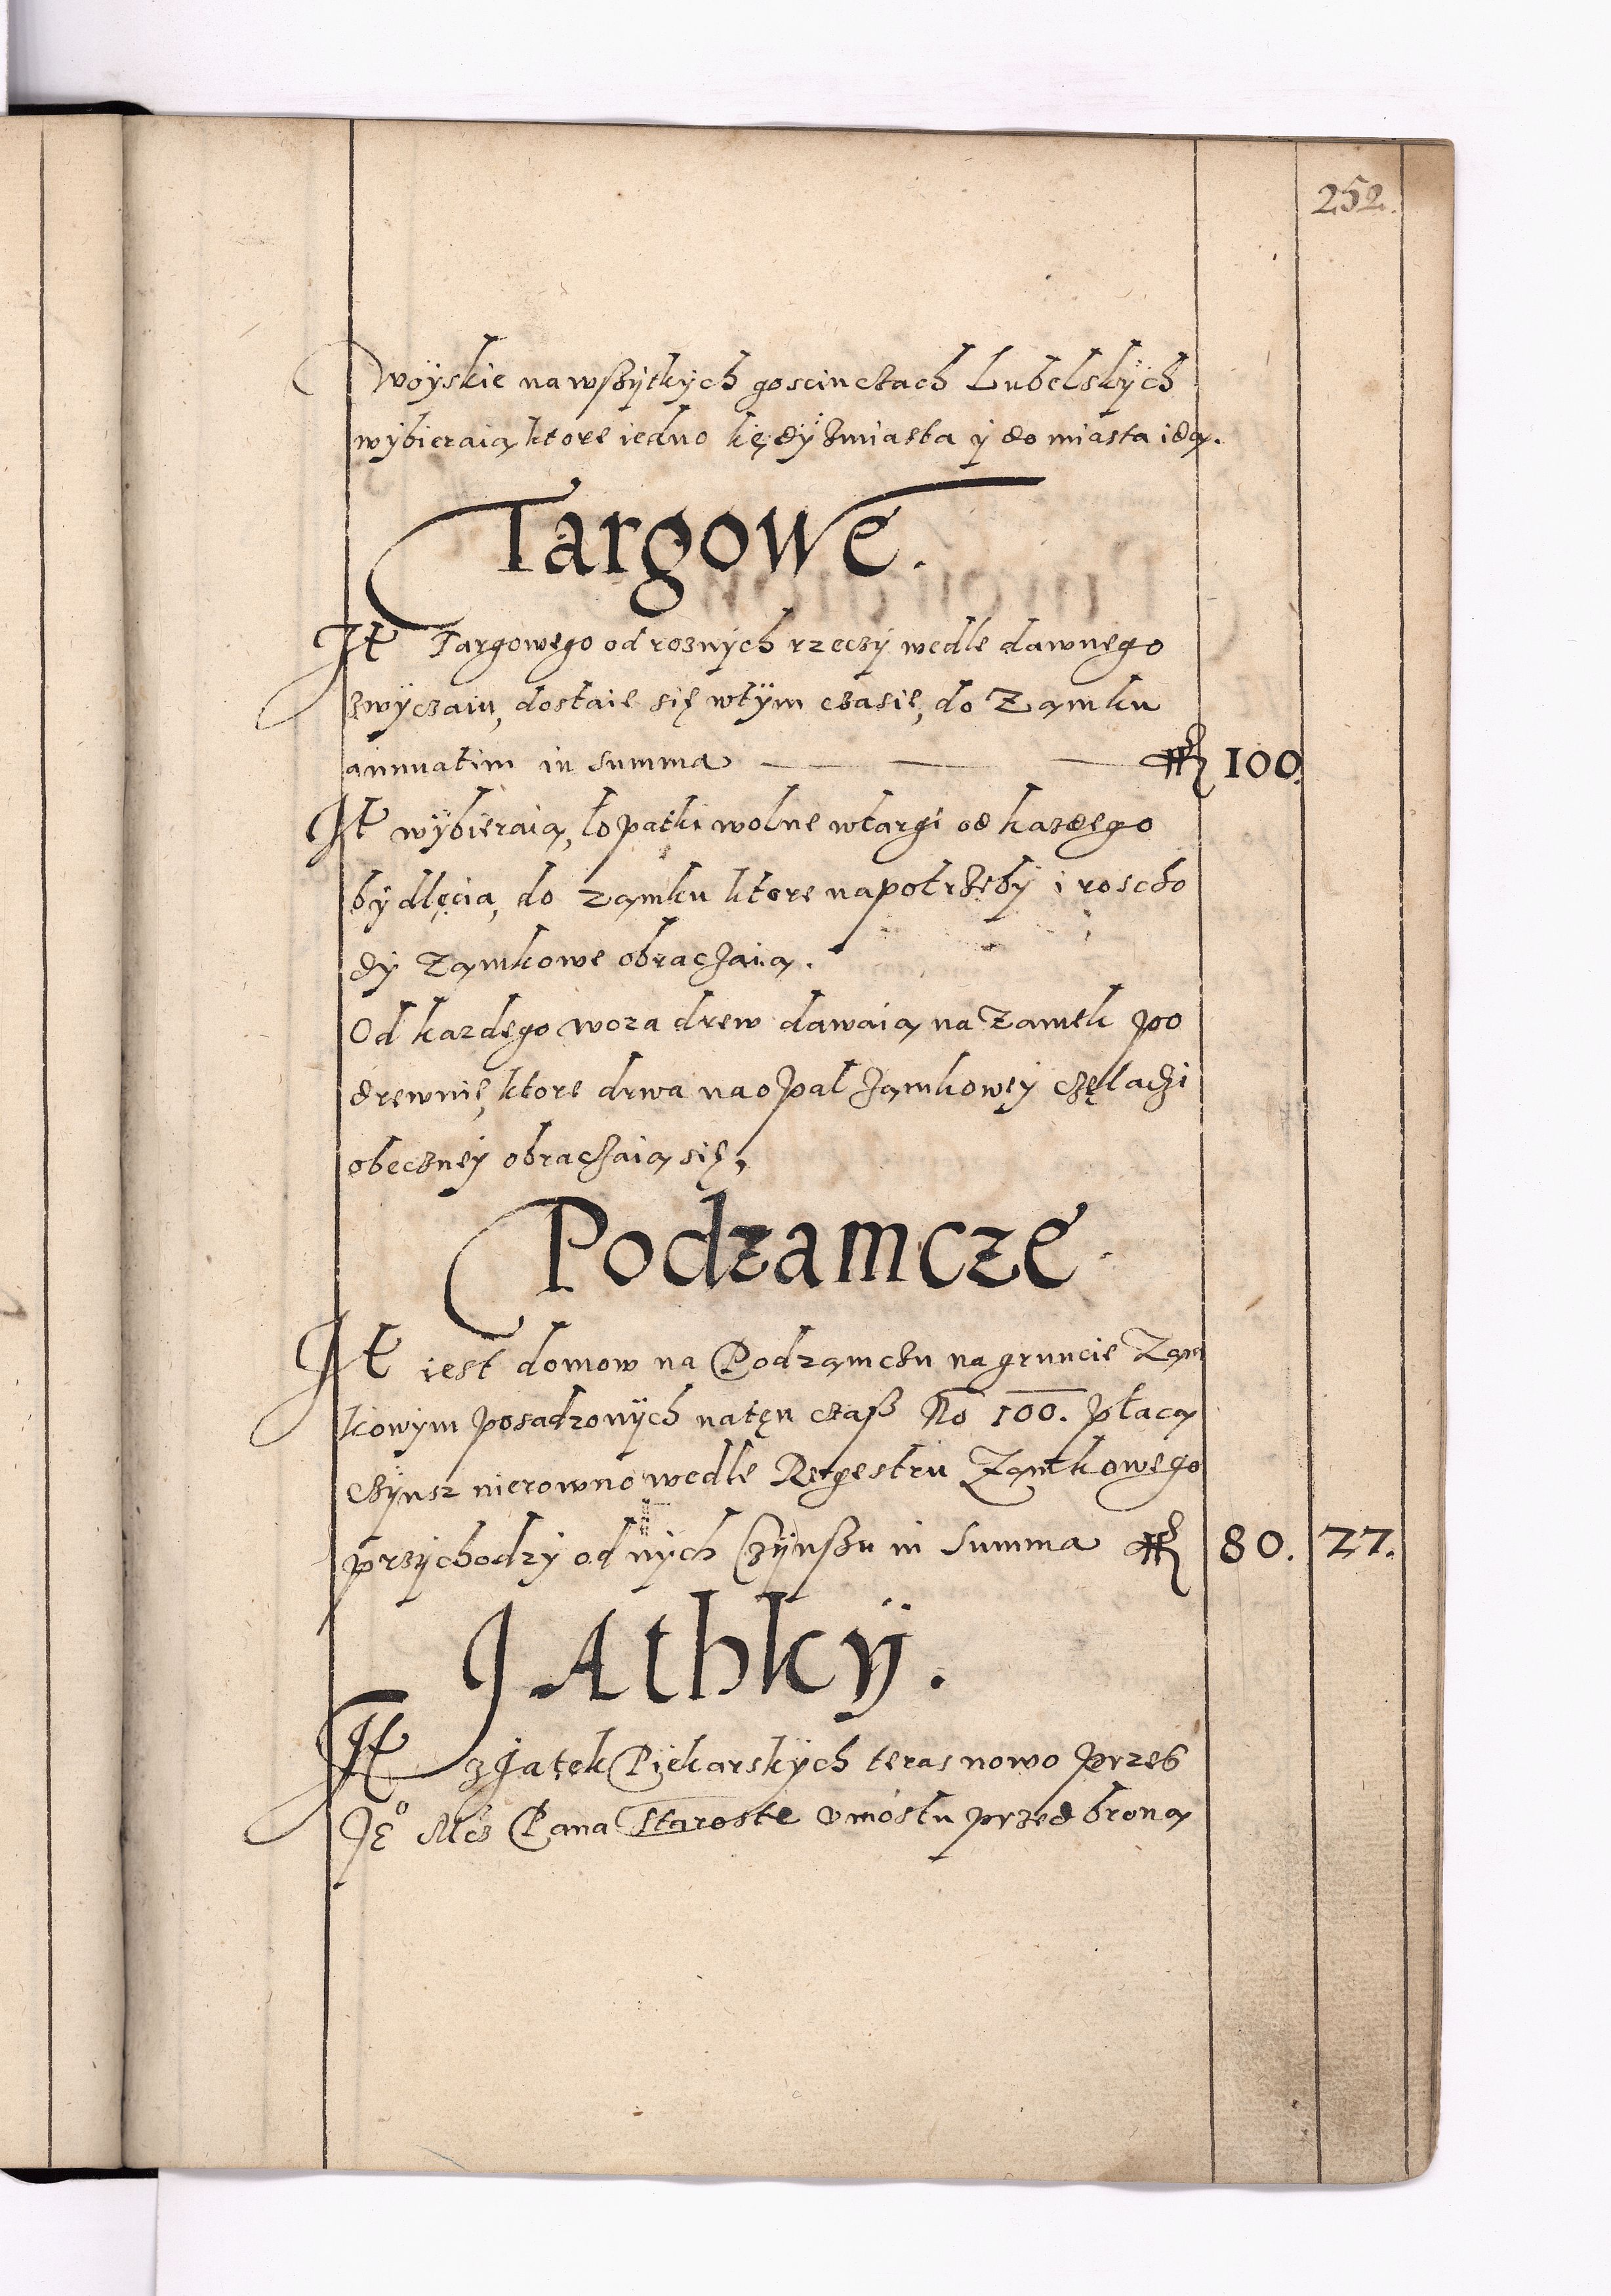 252.
woÿskie na wszÿtkÿch goscinczach Lubelskÿch
wÿbieraią ktore iedno kędÿ zmiasta ÿ do miasta idą.
Targowe.
It Targowego od roznÿch rzeczÿ wedle dawnego
zwÿczaiu, dostaie się wtÿm czasie, do Zamku
annuatim in summa — — — 100.
It wÿbieraią, łopatki wolne wtargi od kazdego
bÿdlęcia, do zamku ktore na potrzebÿ i roscho
dÿ Zamkowe obraczaią.
Od kazdego woza drew dawaią na Zamek po
drewnie, ktore drwa na opał zamkoweÿ czeladzi
obeczneÿ obraczaią się,
Podzamcze.
It iest domow na Podzamczu na gruncie Zam
kowÿm posadzonÿch na tęn czasz No 100. płacą
czÿnsz nierowno wedle Regestru Zamkowego
przÿchodzÿ od nÿch Czÿnszu in Summa 80. 27.
JAthkÿ.
It z Jatek Piekarskÿch teras nowo przes
Jeo Mcz Pana Staroste v mostu przed broną